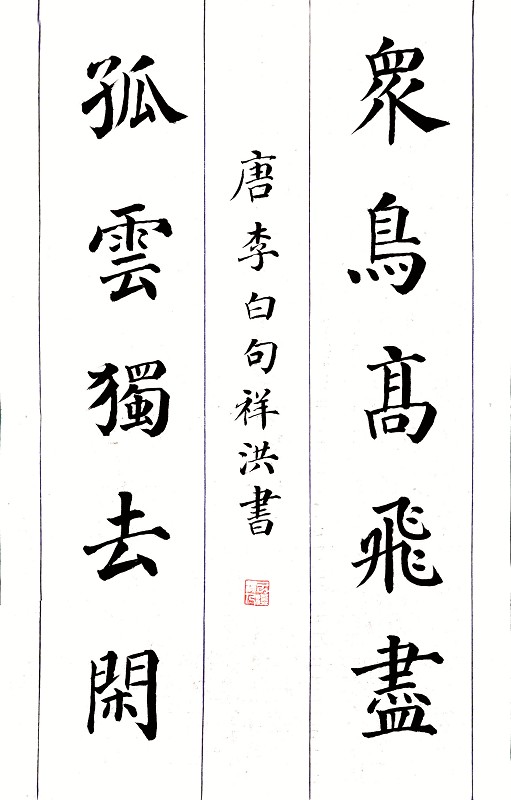 眾鳥髙飛盡
唐李白句祥洪書
孤雲獨去閑